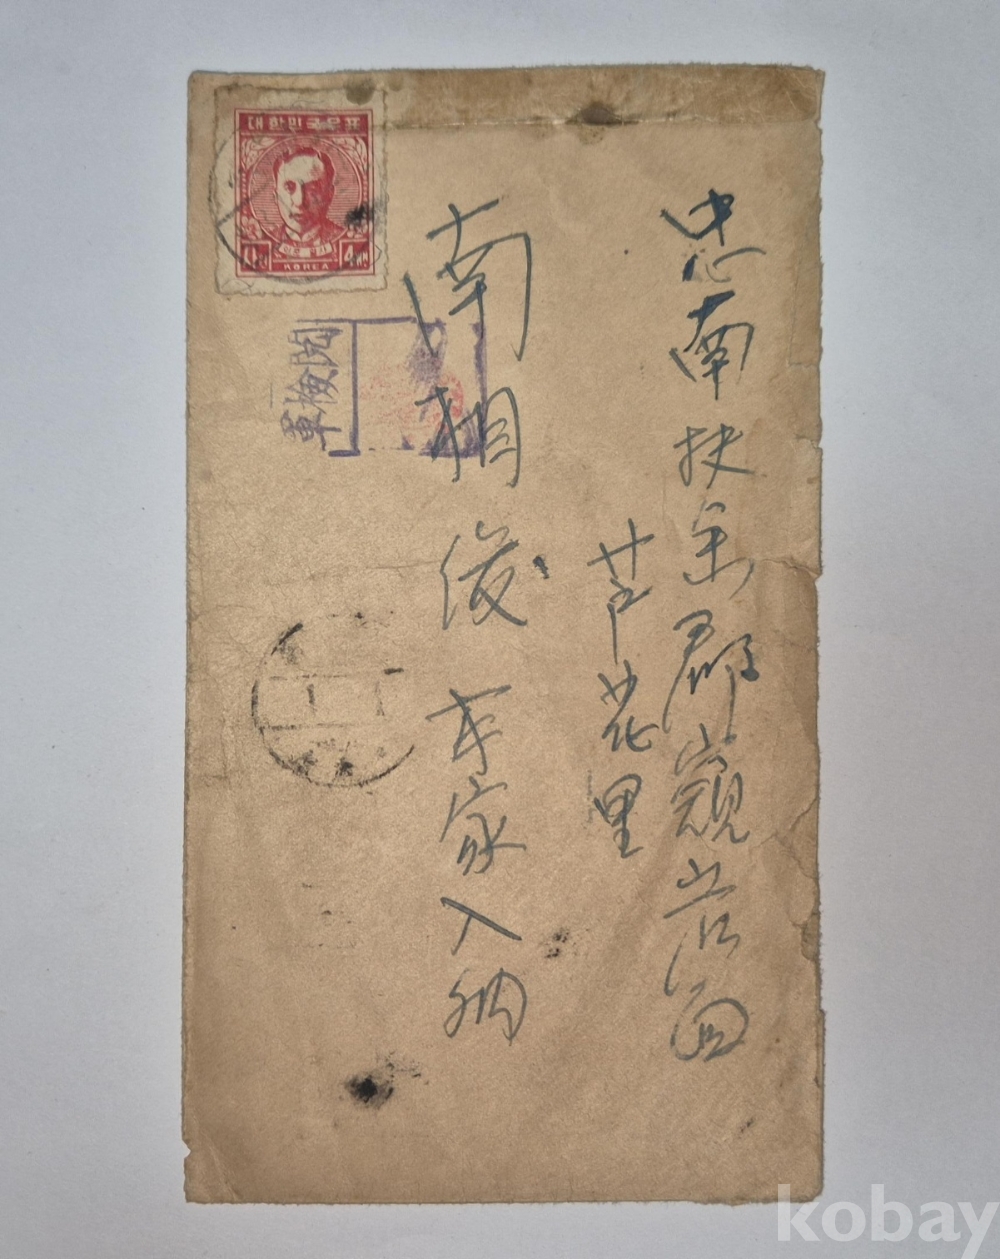 대한민국우표
KOREA
4 WN
軍檢閲
忠南扶余郡窺岩面
芦花里
南相俊 本家入納
kobay